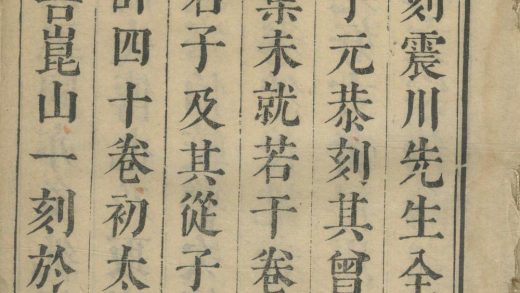 刻震川先生全
子元恭刻其曾
業未就若干卷
君子及其從子
計四十卷初太
吾崑山一刻於